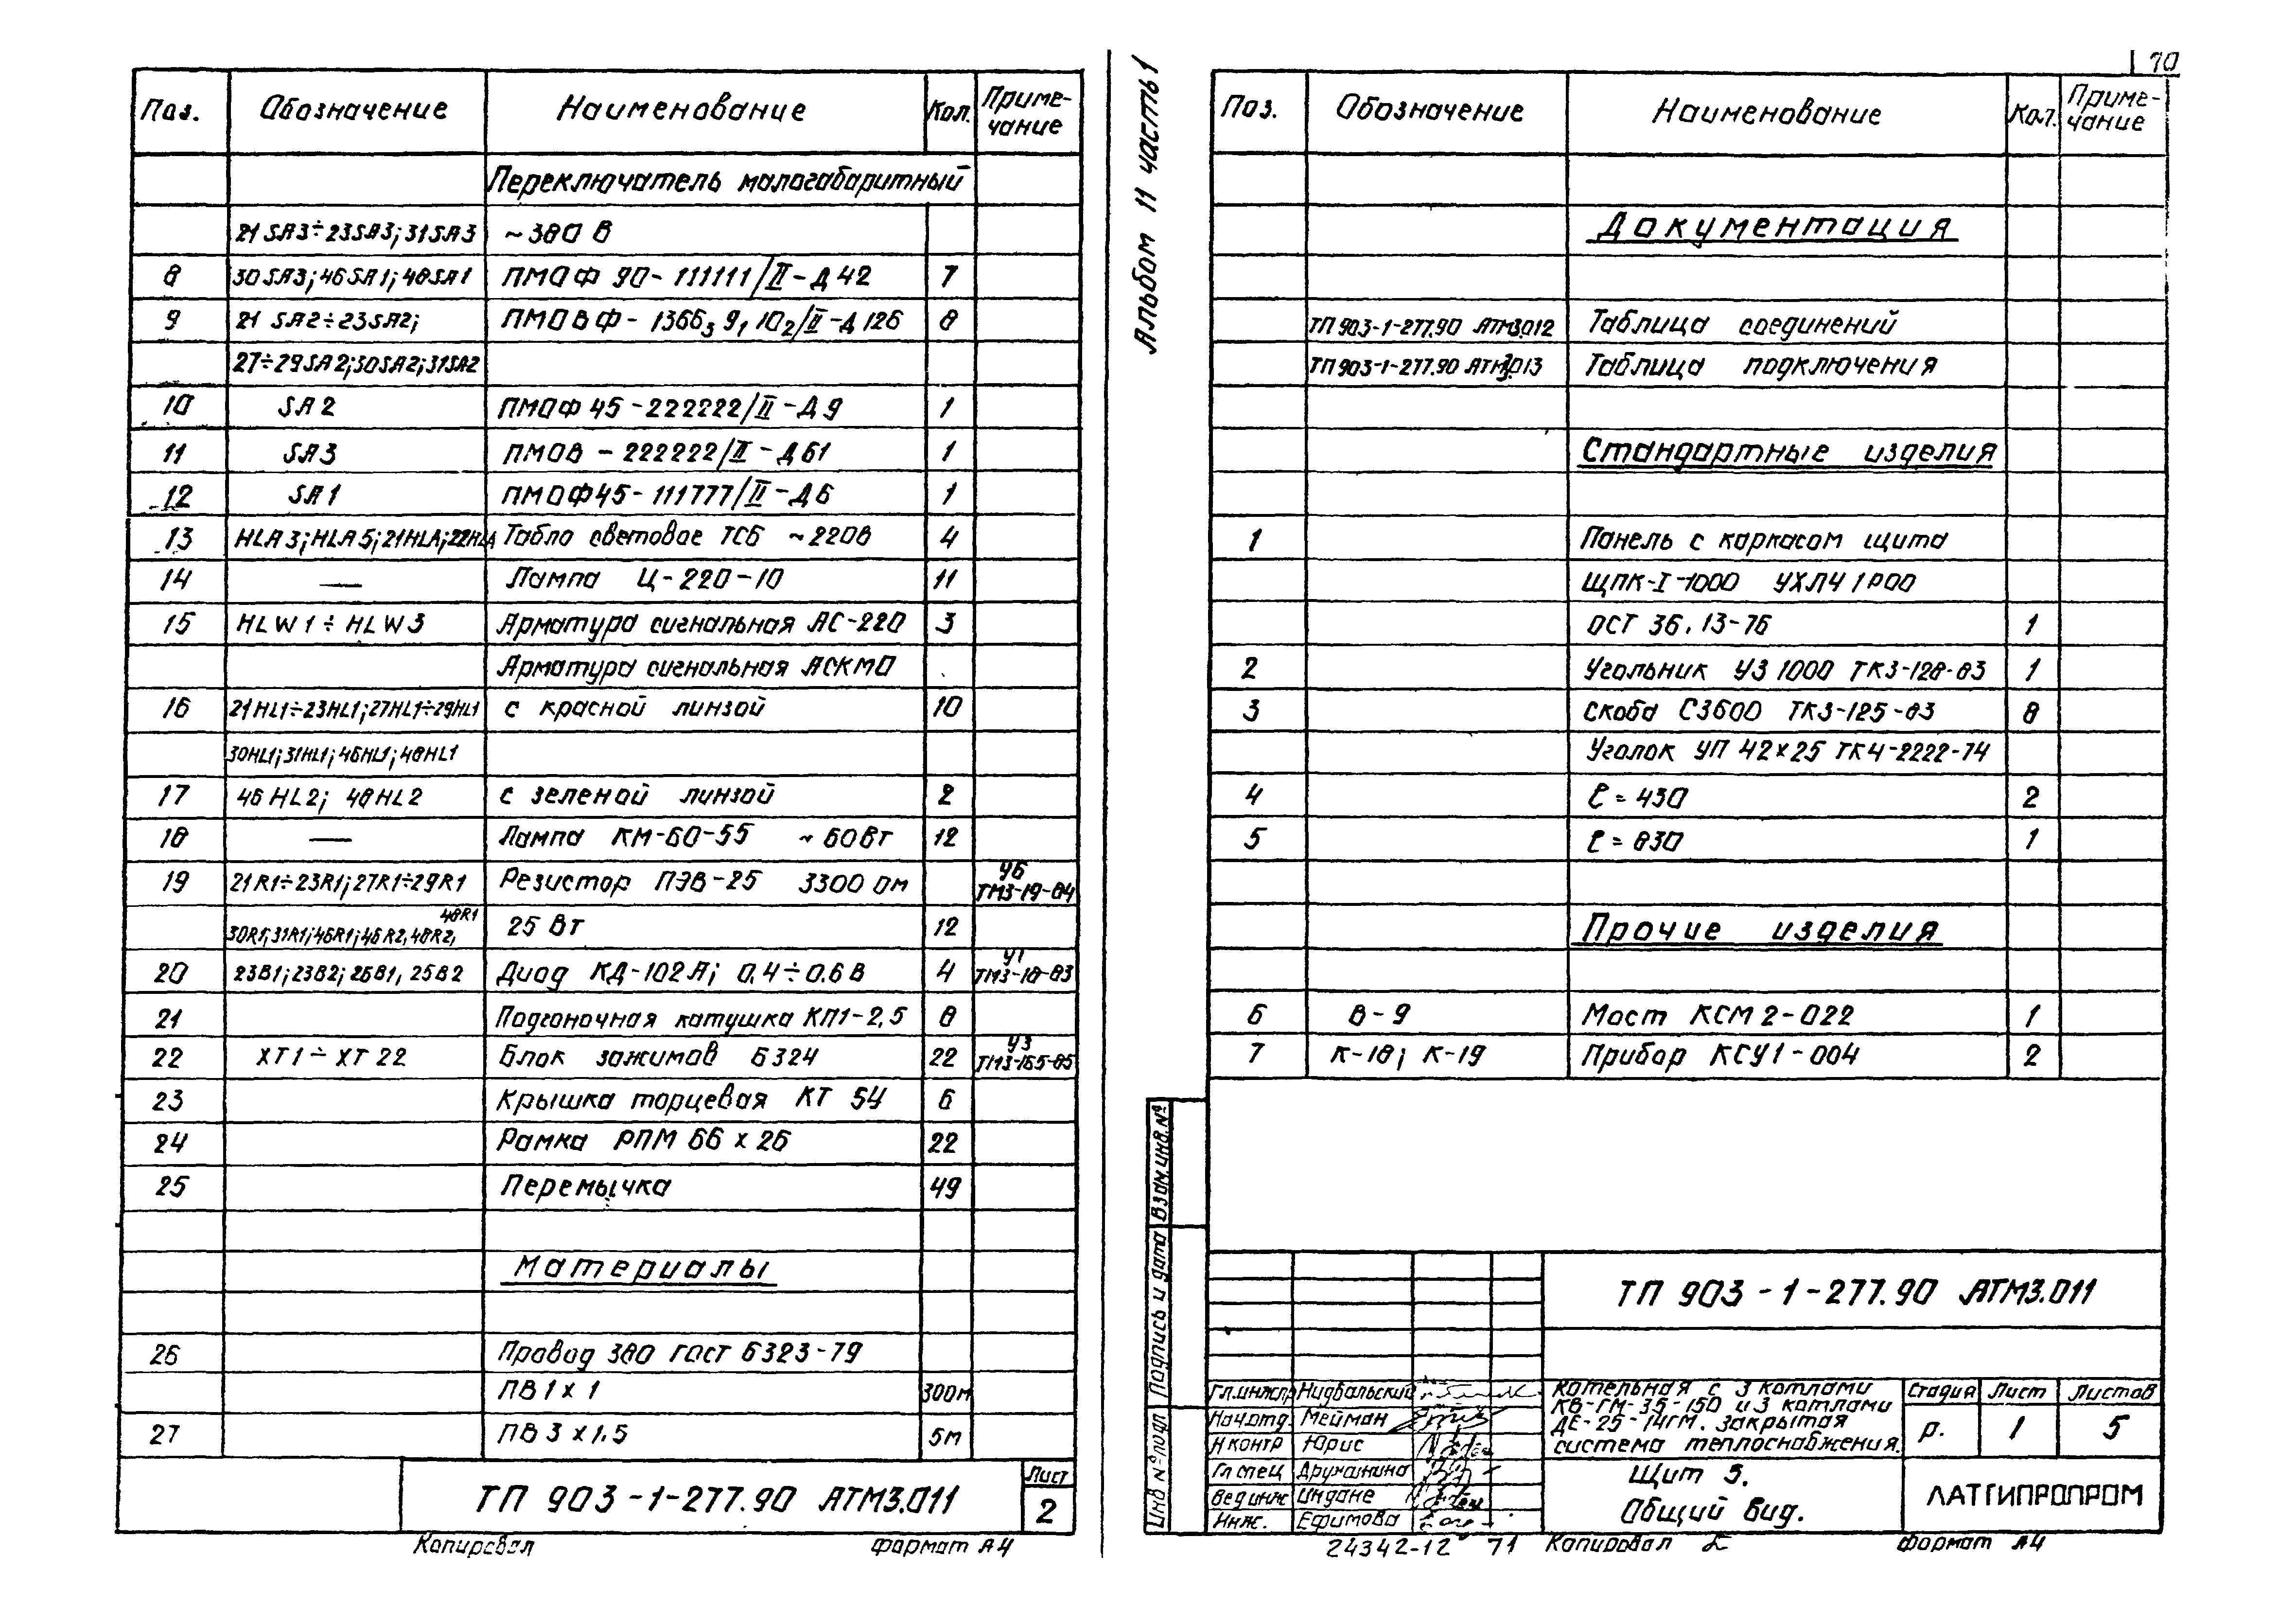 70
Альбом 11 часть 1
Поз. Обозначение Наименование Кол. Приме-чание
Переключатель малогабаритный
21SA3÷23SA3; 31SA3 ~380 В
8 30SA3; 46SA1; 48SA1 ПМОФ 90-111111/II-Д42 7
9 21 SA2÷23SA2; ПМОВФ-1366₃ 9₁ 10₂/II-Д126 8
27÷29SA2; 30SA2; 31SA2
10 SA2 ПМОФ 45-222222/II-Д9 1
11 SA3 ПМОВ-222222/II-Д61 1
12 SA1 ПМОФ45-111777/II-Д6 1
13 HLA3; HLA5; 21HLA; 22HLA Табло световое ТСБ ~220В 4
14 — Лампа Ц-220-10 11
15 HLW1÷HLW3 Арматура сигнальная АС-220 3
Арматура сигнальная АСКМО
16 21HL1÷23HL1; 27HL1÷29HL1 с красной линзой 10
30HL1; 31HL1; 46HL1; 48HL1
17 46HL2; 48HL2 с зеленой линзой 2
18 — Лампа КМ-60-55 ~60Вт 12
19 21R1÷23R1; 27R1÷29R1 Резистор ПЭВ-25 3300 Ом У6 ТМ3-19-84
30R1; 31R1; 46R1; 46R2, 48R2, 48R1 25 Вт 12
20 23В1; 23В2; 25В1, 25В2 Диод КД-102А; 0,4÷0.6В 4 У1 ТМ3-18-83
21 Подгоночная катушка КП1-2,5 8
22 ХТ1÷ХТ22 Блок зажимов Б324 22 У3 ТМ3-165-85
23 Крышка торцевая КТ 5У 6
24 Рамка РПМ 66х26 22
25 Перемычка 49
Материалы
26 Провод 380 ГОСТ 6323-79
ПВ 1х1 300м
27 ПВ 3х1.5 5м
ТП 903-1-277.90 АТМ3.011
Лист
2
Копировал Формат А4
Поз. Обозначение Наименование Кол. Приме-чание
Документация
ТП903-1-277.90 АТМ3.012 Таблица соединений
ТП903-1-277.90 АТМ3.013 Таблица подключения
Стандартные изделия
1 Панель с каркасом щита
ЩПК-I-1000 УХЛ4 1Р00
ОСТ 36.13-76 1
2 Угольник УЗ 1000 ТК3-128-83 1
3 Скоба С3600 ТК3-125-83 8
Уголок УП 42х25 ТК4-2222-74
4 ℓ=430 2
5 ℓ=830 1
Прочие изделия
6 8-9 Мост КСМ2-022 1
7 К-18; К-19 Прибор КСУ1-004 2
Инв № подл Подпись и дата Взам.инв.№
ТП 903-1-277.90 АТМ3.011
Гл.инж.пр Нидбальский
Нач.отд. Мейман
Н контр Юрис
Гл спец Дружинина
Вед инж Индане
Инж. Ефимова
Котельная с 3 котлами
КВ-ГМ-35-150 и 3 котлами
ДЕ-25-14ГМ. Закрытая
система теплоснабжения.
Стадия Лист Листов
Р. 1 5
Щит 3.
Общий вид.
ЛАТГИПРОПРОМ
24342-12 71 Копировал Формат А4